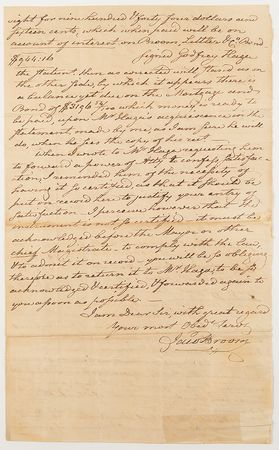 eight for nine hundred & forty four dollars and
sixteen cents, which when paid will be on
account of interest on Broom, & Co. Bond
$944:16 Signed Godfrey Haga
the statent then as corrected will stand as on
the other side, by which it appears there is
a balance yet due on the Mortgage and
Bond of which money is ready to
be paid, upon Mr. Haga's acquiescence in the
statement made by me, as I am sure he will
do, when he sees the copy of his rect.
When I wrote to Mr. Haga requesting him
to forward a power of Atty to confess satisfac-
tion, I reminded him of the necessity of
having it so certified, as that it should be
put on record here to justify your entry of
Satisfaction. I perceive however that the
instrument is not so certified - it must be
acknowledged before the Mayor or other
chief Magistrate - to comply with the law,
& to admit it on record - you will be so obliging
therefore as to return it to Mr. Haga, to be so
acknowledged & certified, & forwarded again to
you as soon as possible -
I am Dear Sir, with great regard
Your most Obedt. Servt.
Jacob Broom